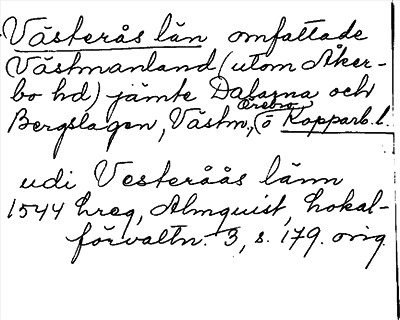 Västerås län omfattade
Västmanland (utom Åker-
bo hd) jämte Dalarna och
Örebro
Bergslagen, Västm, ö Kopparb. l.
udi Vesteråås länn
1544 hreg, Almquist, Lokal-
förvaltn. 3, s. 179. orig.